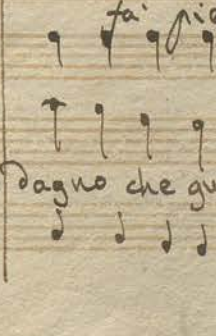 fai pio
dagno che gu